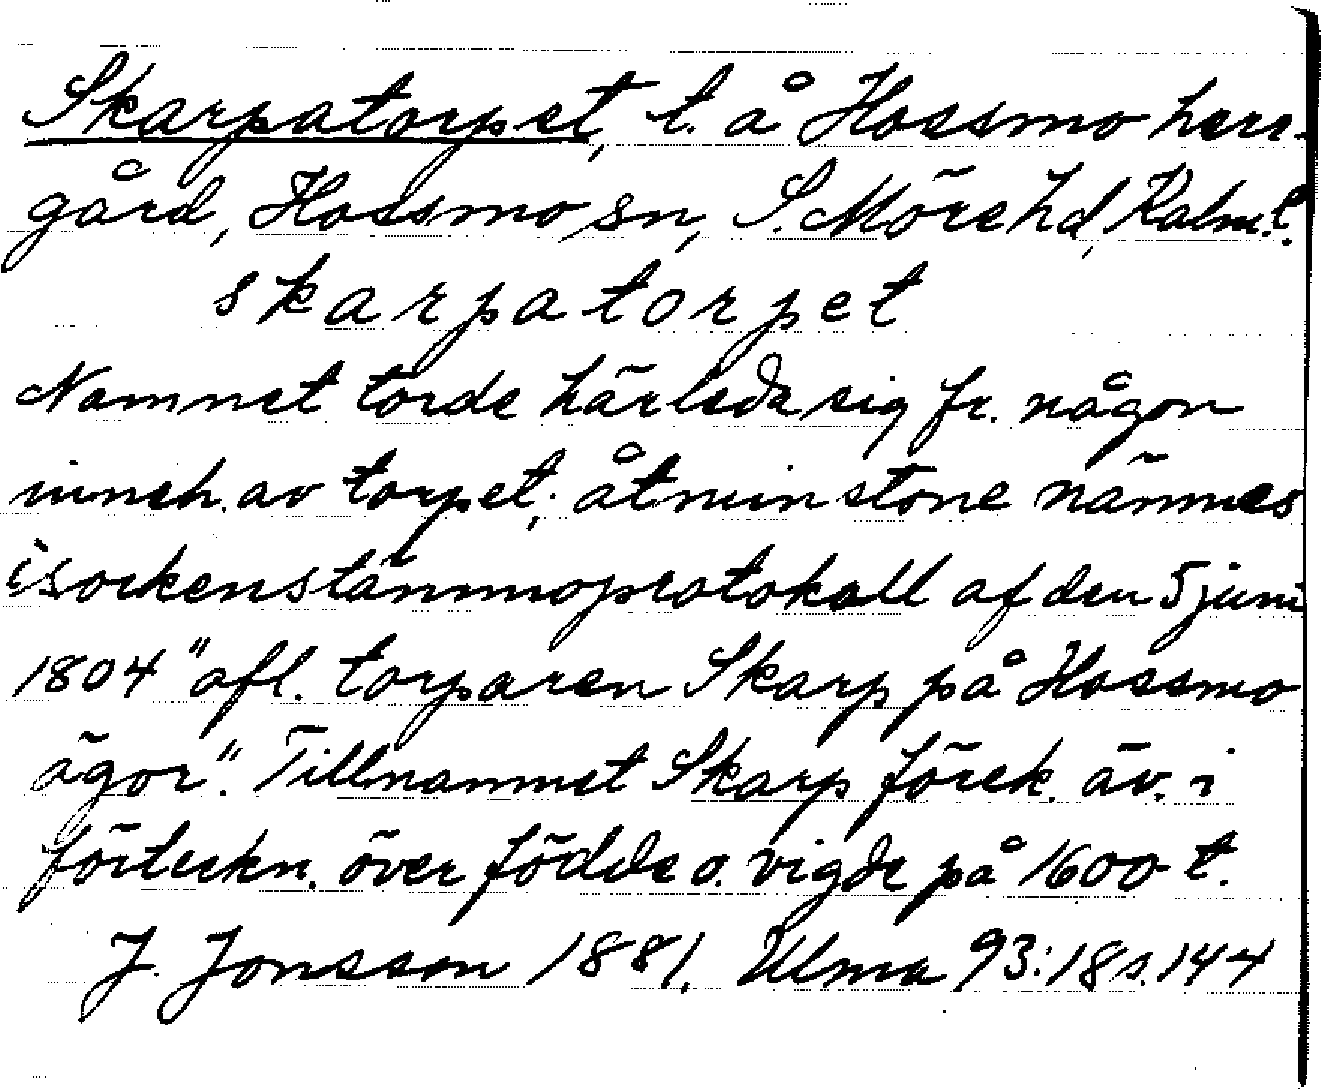 Skarpatorpet, t. å Hossmo herr-
gård, Hossmo sn, S. Möre hd, Kalm.l.
skarpatorpet
Namnet torde härleda sig fr. någon
inneh. av torpet; åtminstone nämnes
i sockenstämmoprotokoll af den 5 juni
1804 "afl. torparen Skarp på Hossmo
ägor". Tillnamnet Skarp förek. äv. i
förteckn. över födde o. vigde på 1600-t.
J. Jonsson 1881. Ulma 93:18 s. 144